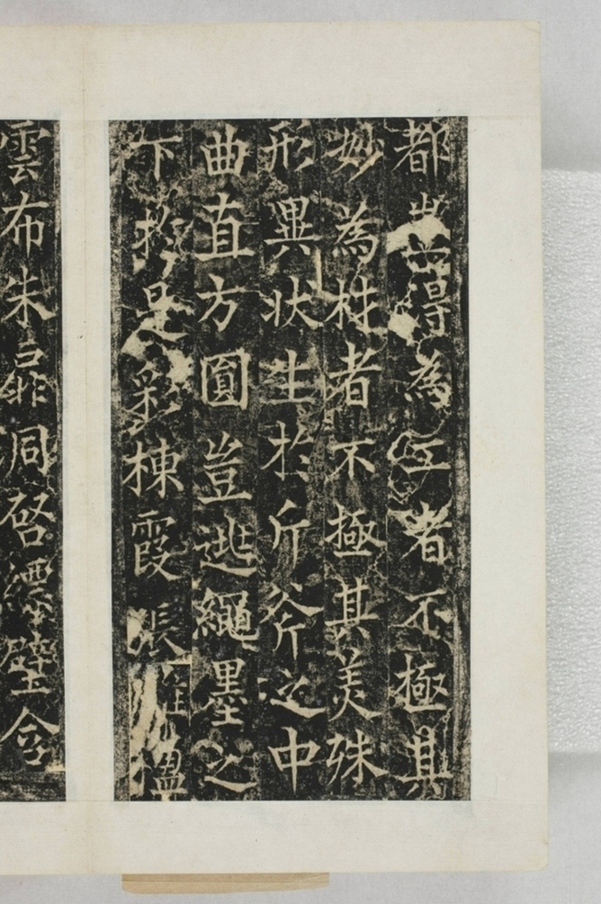 都得為工者不極其
妙為材者不極其美殊
形異狀生於斤斧之中
曲直方圓豈逃繩墨之
下於是彩棟霞張楹
雲布朱扉洞啓壁含